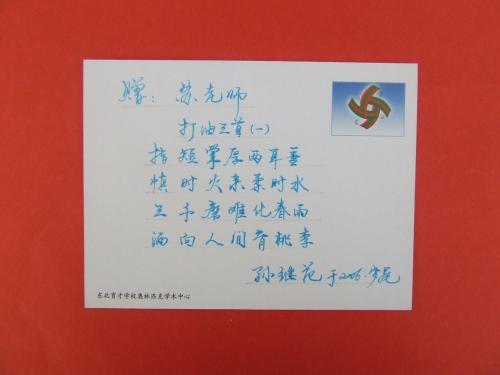 赠：苏老师
打油三首(一)
指短掌厚两耳垂
慎时火来柔时水
三千磨难化春雨
洒向人间育桃李
孙继范于2006.岁尾
东北育才学校奥林匹克学术中心